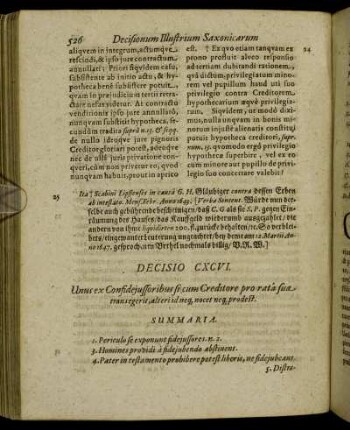 526 Decisionum Illustrium Saxonicarum
aliqvem in integrum, actumqve
rescindi, & ipso jure contractum
annullari; Priori siqvidem casu,
subsistente ab initio actu, & hy-
potheca benè subsistere potuit,
qvam in præjudicium tertii retra-
ctare nefas videtur. At contractu
venditionis ipso jure annullato,
nunqvam subsistit hypotheca, se-
cundùm tradita suprà n. 15. & seqq.
de nulla idroqve jure pignoris
Creditor gloriari potest, adeoqve
nec de ullo juris privatione con-
qveri, cùm non privetur eo, qvod
nunqvam habuit, prout in aprico
est. † Ex qvo etiam tanqvam ex 24
prono profluit alveo responsio
ad tertiam dubitandi rationem,
qvâ dictum, privilegiatum mino-
rem vel pupillum haud uti suo
privilegio contra Creditorem,
hypothecarium æqvè privilegia-
tum, Siqvidem, ut modò dixi-
mus, nulla unqvam in bonis mi-
noris injustè alienatis constitui
potuit hypotheca creditori, supr.
num. 15. qvomodo ergò privilegio
hypotheca superbire, vel ex ea
cum minore aut pupillo de privi-
legio suo concertare valebit?
25 Ita † Scabini Lipsienses in causâ G. H. Gläubiger contra dessen Erben
ab intestato. Mens. Febr. Anno 1649. Verba Sentent. Würde nun der-
selbe auch gebührende bescheinigen, daß C. G als sie J. P. gegen Ein-
räumung des Hauses, das Kauffgeld wiederumb ausgezahlet, die
andern von ihme liqvidirten 200. fl. zurück bezahlet, 
DECISIO CXCVI.
Unus ex Confidejussoribus si cum Creditore pro ratâ suâ
transegerit, alteri id neq, nocet neq, prodest.
SUMMARIA.
1. Periculo se exponunt fidejussores. n. 2.
3. Homines providi à fidejubendo abstinent.
4. Pater in testamento prohibere potest liberis, ne fidejubeant.
5. Distin-